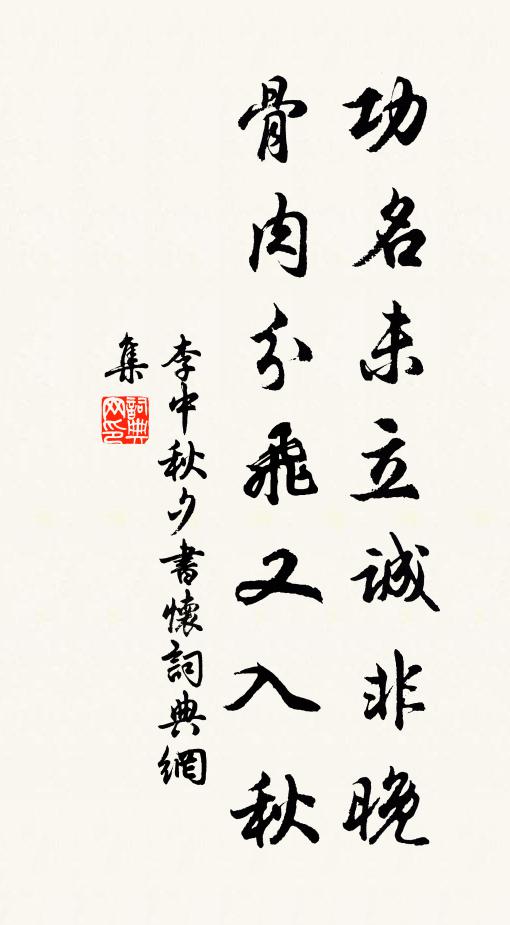 功名未立誠非晚
骨肉分飛又入秋
李中秋夕書懷詞典網
集
詞典
网印